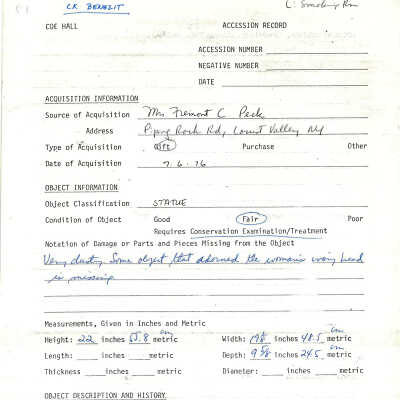 CK BENEZIT
L: Smoking Rm
COE HALL ACCESSION RECORD
ACCESSION NUMBER
NEGATIVE NUMBER
DATE
ACQUISITION INFORMATION
Source of Acquisition Mrs Fremont C Peck
Address Piping Rock Rd, Locust Valley, NY
Type of Acquisition Gift Purchase Other
Date of Acquisition 7.6.76
OBJECT INFORMATION
Object Classification STATUE
Condition of Object Good Fair Poor
Requires Conservation Examination/Treatment
Notation of Damage or Parts and Pieces Missing from the Object
Very dusty. Some object that adorned the woman's ivory head
is missing
Measurements, Given in Inches and Metric
Height: 22 inches 55.8 cm metric Width: inches 48.5 cm metric
Length: inches metric Depth: 9 5/8 inches 24.5 cm metric
Thickness inches metric Diameter: inches metric
OBJECT DESCRIPTION AND HISTORY